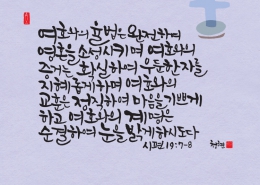 여호와의 율법은 완전하여
영혼을 소성시키며 여호와의
증거는 확실하여 우둔한 자를
지혜롭게 하며 여호와의
교훈은 정직하여 마음을 기쁘게
하고 여호와의 계명은
순결하여 눈을 밝게 하시도다
시편 19:7-8